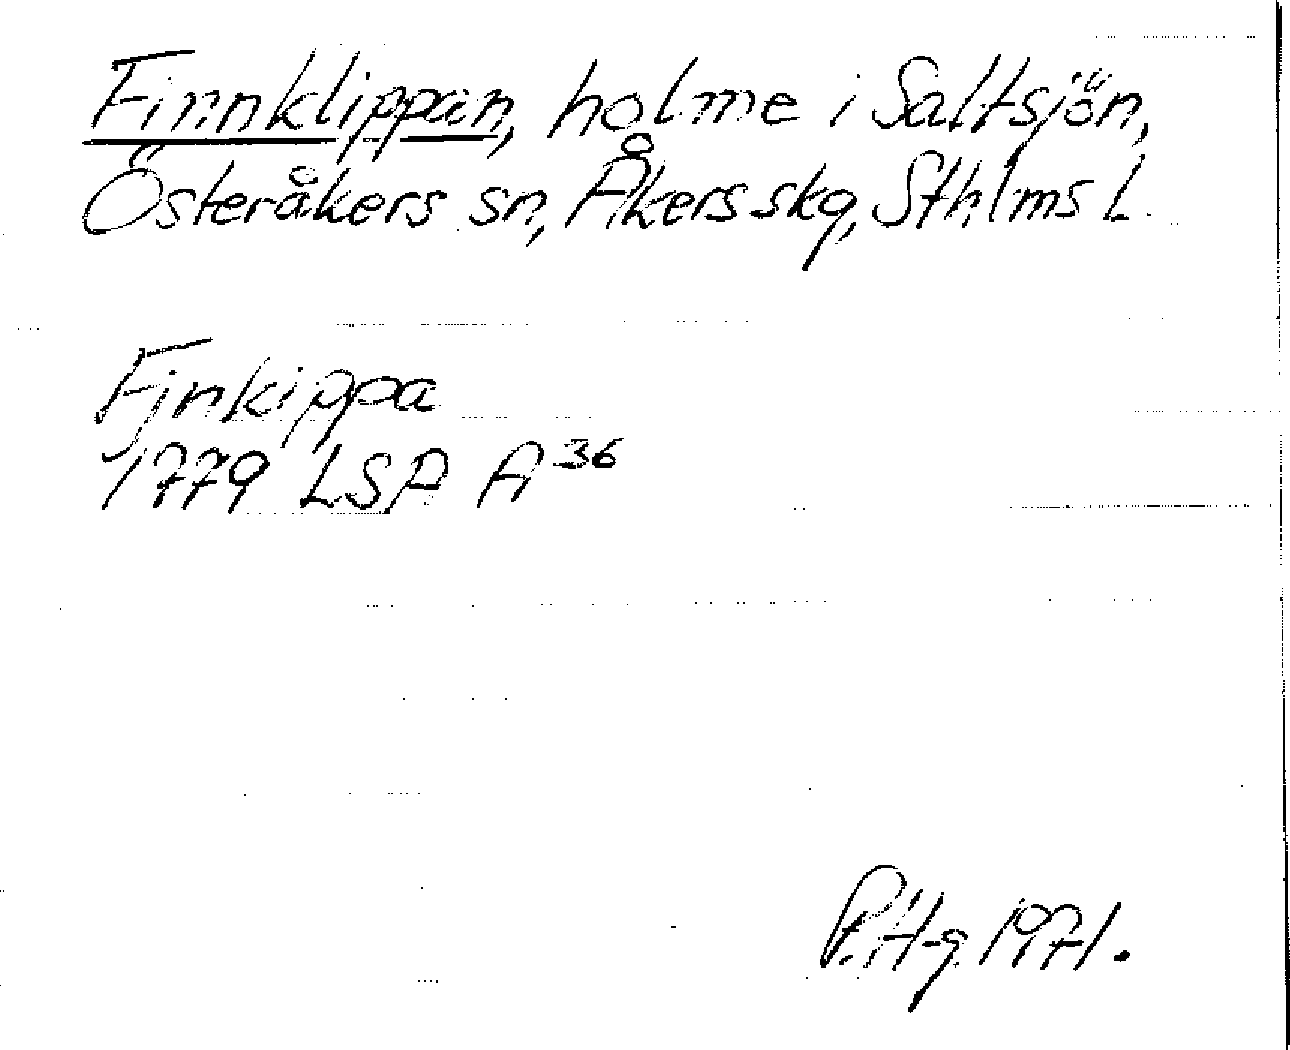 Finnklippan, holme i Saltsjön,
Österåkers sn, Åkers skg, Sthlms L.
Finkippa
1779 LSA A 36
P. H-g. 1971.